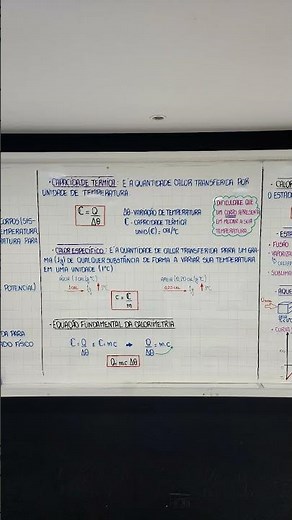 CORPOS (SIS-
TEMPERATURA,
ATURA PARA
POTENCIAL)
DA PARA
ADO FÍSICO
• CAPACIDADE TÉRMICA: É A QUANTIDADE CALOR TRANSFERIDA POR
UNIDADE DE TEMPERATURA
C = Q
Δθ
Δθ - VARIAÇÃO DE TEMPERATURA
C - CAPACIDADE TÉRMICA
UNID(C): CAL/°C
DIFICULDADE QUE
UM CORPO APRESENTA
EM MUDAR A SUA
TEMPERATURA
• CALOR ESPECÍFICO: É A QUANTIDADE DE CALOR TRANSFERIDA PARA UM GRA-
MA (1g) DE QUALQUER SUBSTÂNCIA DE FORMA A VARIAR SUA TEMPERATURA
EM UMA UNIDADE (1°C)
ÁGUA (1 CAL/g°C)
AREIA (0,20 CAL/g°C)
1g
1°C
1g
1°C
c = C
m
• EQUAÇÃO FUNDAMENTAL DA CALORIMETRIA
C = Q
Δθ
e C = m c
Q = m c
Δθ
Q = m c Δθ
• CALOR
O ESTADO
• ESTA
• FUSÃO
• VAPORIZA
• AQUE